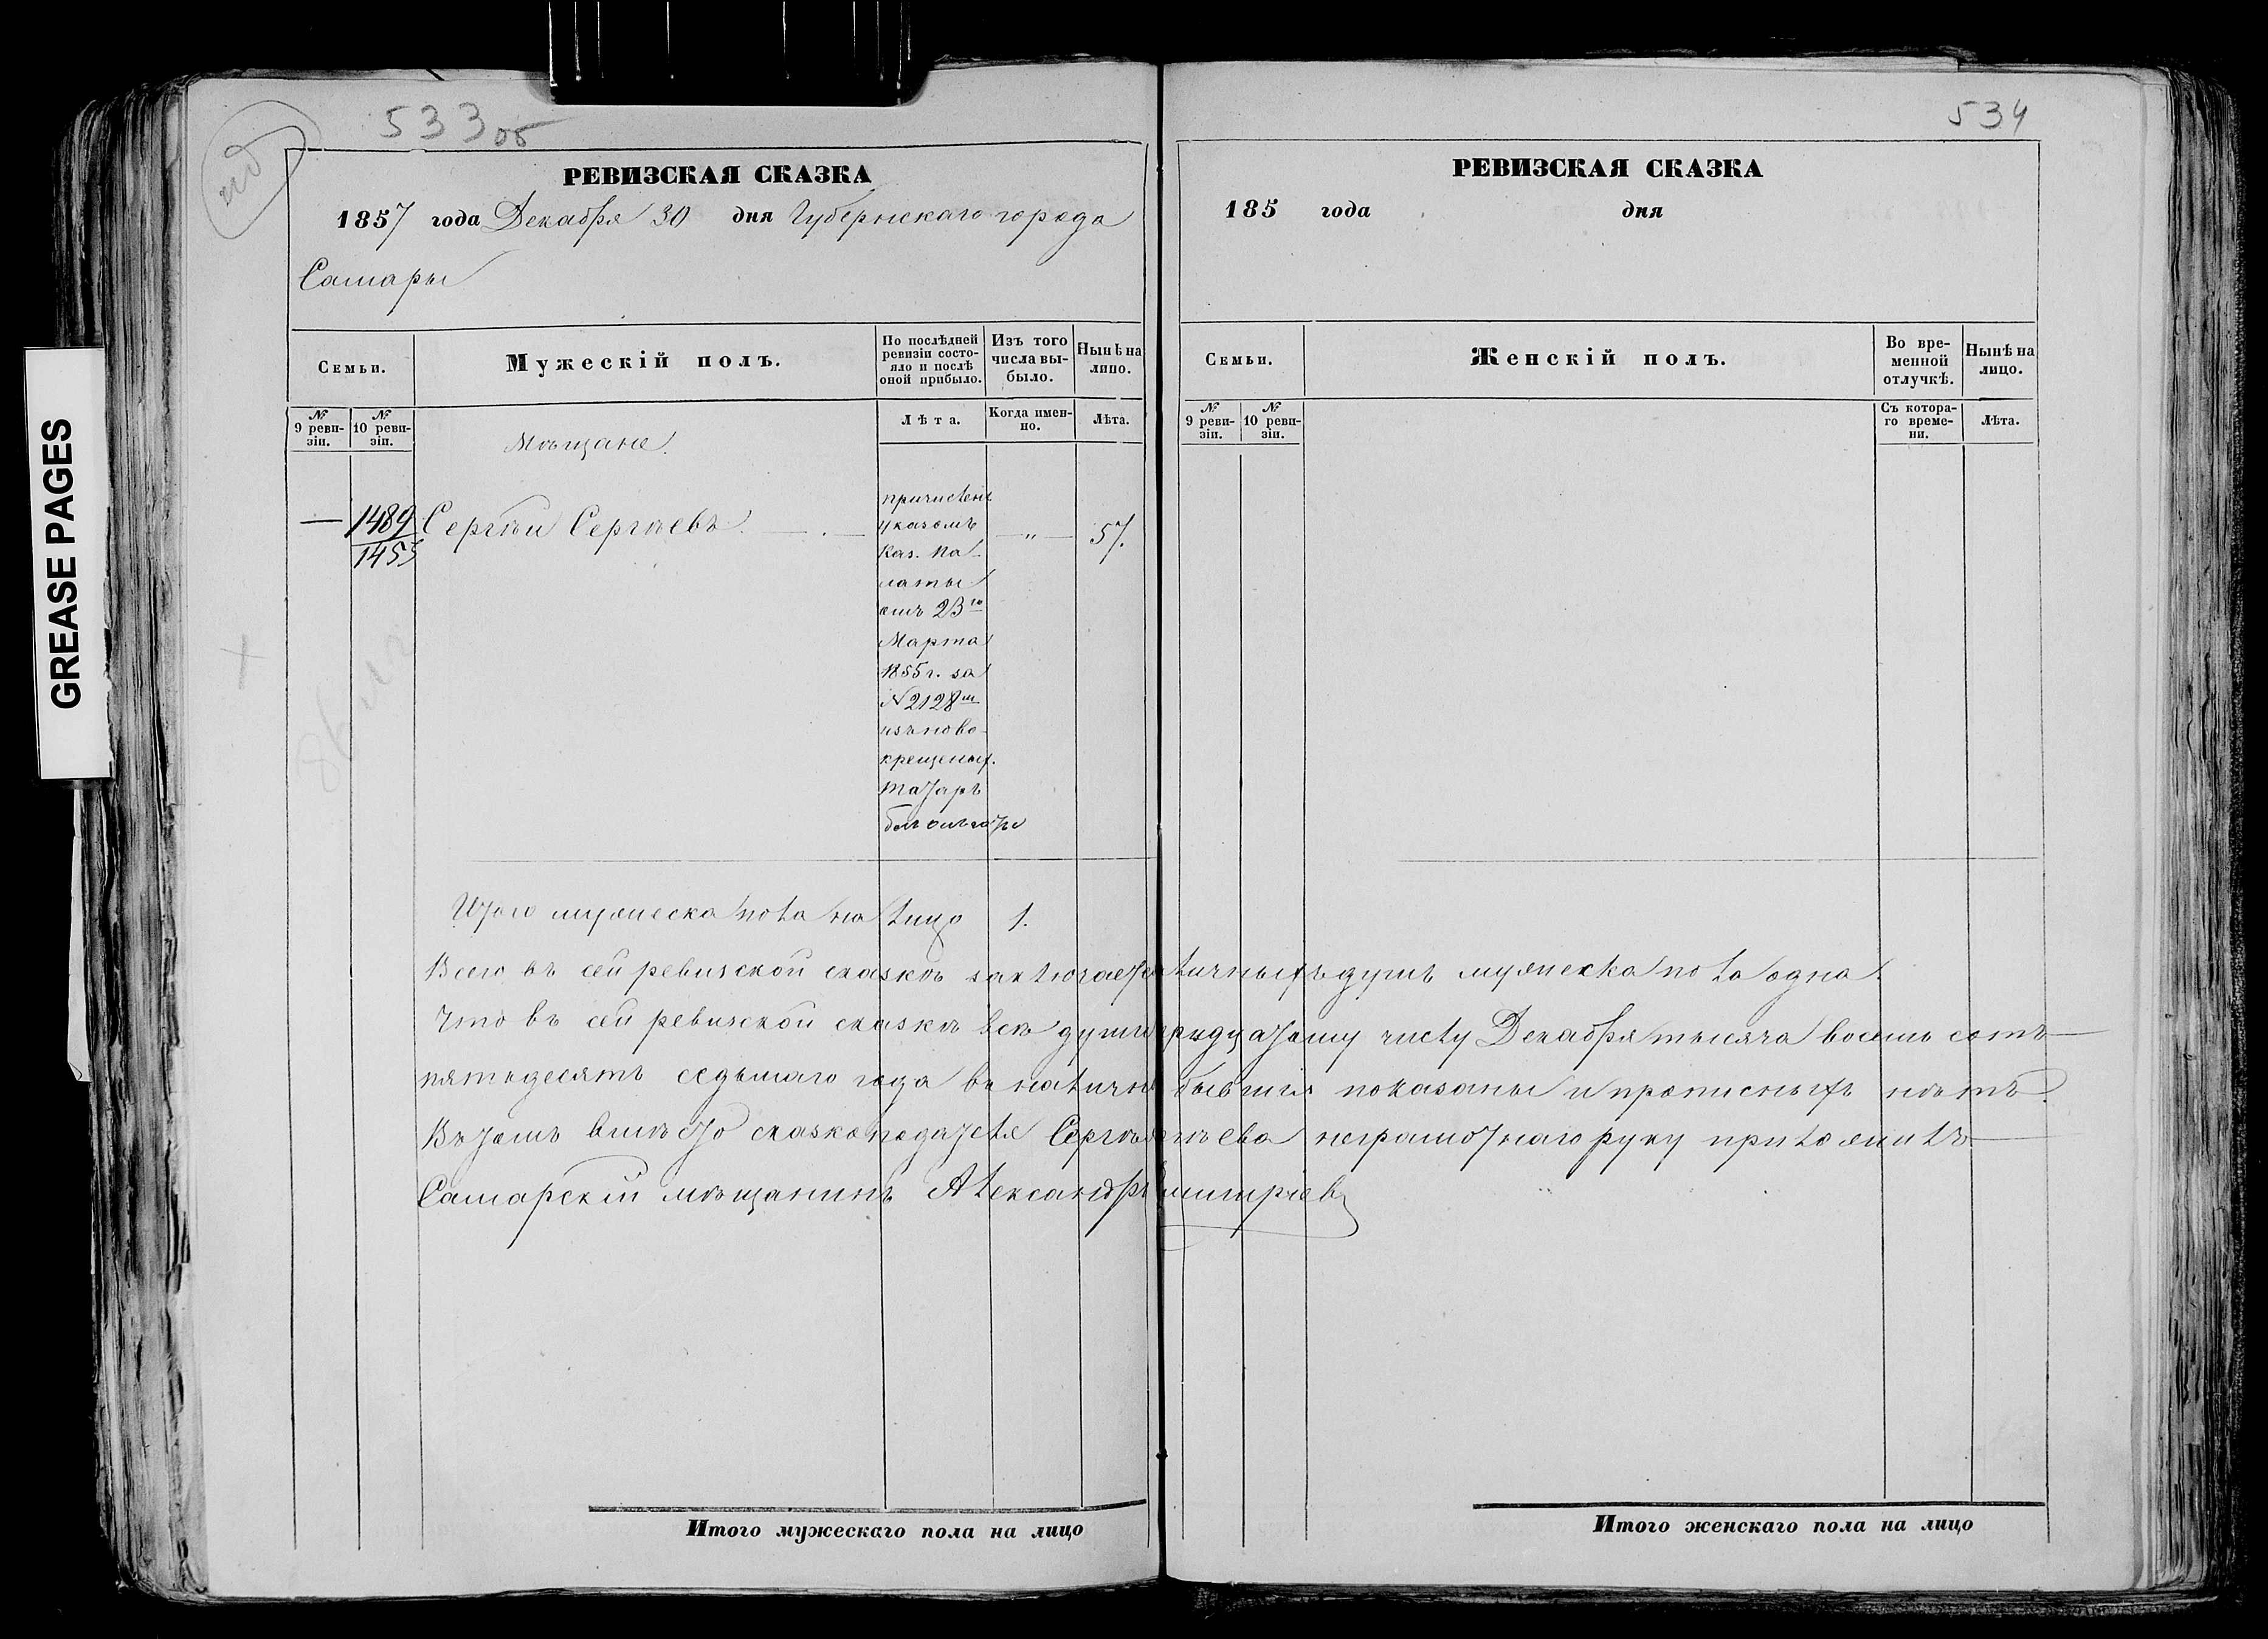 533об
РЕВИЗСКАЯ СКАЗКА
1857 года Декабря 30 дня Губернскаго города
Самары
Семьи.
Мужескій полъ.
По послѣдней ревизіи состояло и послѣ оной прибыло.
Изъ того числа выбыло.
Нынѣ на лицо.
№ 9 ревизіи.
№ 10 ревизіи.
Лѣта.
Когда именно.
Лѣта.
Мѣщане.
— 1489 Сергѣй Сергѣевъ. — „ — 57.
1455
причисленъ
указомъ
Каз. Па-
латы
отъ 23го
Марта
1855 г. за
№ 2128м
изъ ново-
крещеных.
татаръ
GREASE PAGES
534
РЕВИЗСКАЯ СКАЗКА
185 года дня
Семьи.
Женскій полъ.
Во временной отлучкѣ.
Нынѣ на лицо.
№ 9 ревизіи.
№ 10 ревизіи.
Съ котораго времени.
Лѣта.
Итого мужеска пола на лицо 1.
Всего въ сей ревизской сказкѣ заключается личныхъ душъ мужеска пола одна.
Что въ сей ревизской сказкѣ всѣ души тридцатому числу Декабря тысяча восемь сотъ
пятьдесятъ седьмаго года въ наличн бывшія показаны и прописныхъ нѣтъ.
Въ томъ вмѣсто сказкоподателя Сергѣя неграмотнаго руку приложилъ
Самарскій мѣщанинъ Александръ Дмитріевъ
Итого мужескаго пола на лицо
Итого женскаго пола на лицо